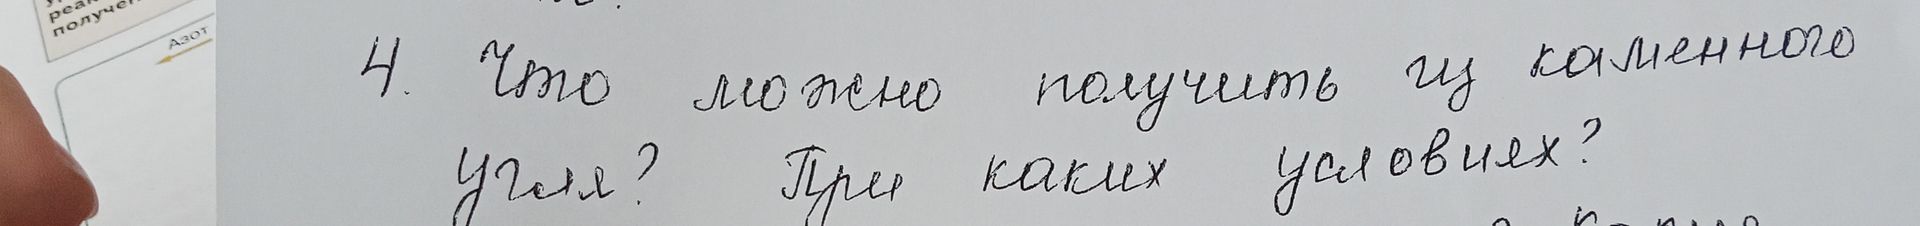 получен
Азот
4. Что можно получить из каменного
угля? При каких условиях?